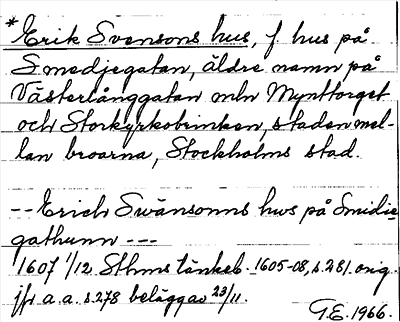 *Erik Svensons hus, f. hus på
Smedjegatan, äldre namn på
Västerlånggatan mln Mynttorget
och Storkyrkobrinken, staden mel-
lan broarna, Stockholms stad.
-- Erich Swänsonns hws på Smidie
gathunn ---
1607 1/12 Sthms tänkeb. 1605-08, s. 281. orig.
jfr a.a. s. 278 beläggav 23/11.
G.E. 1966.